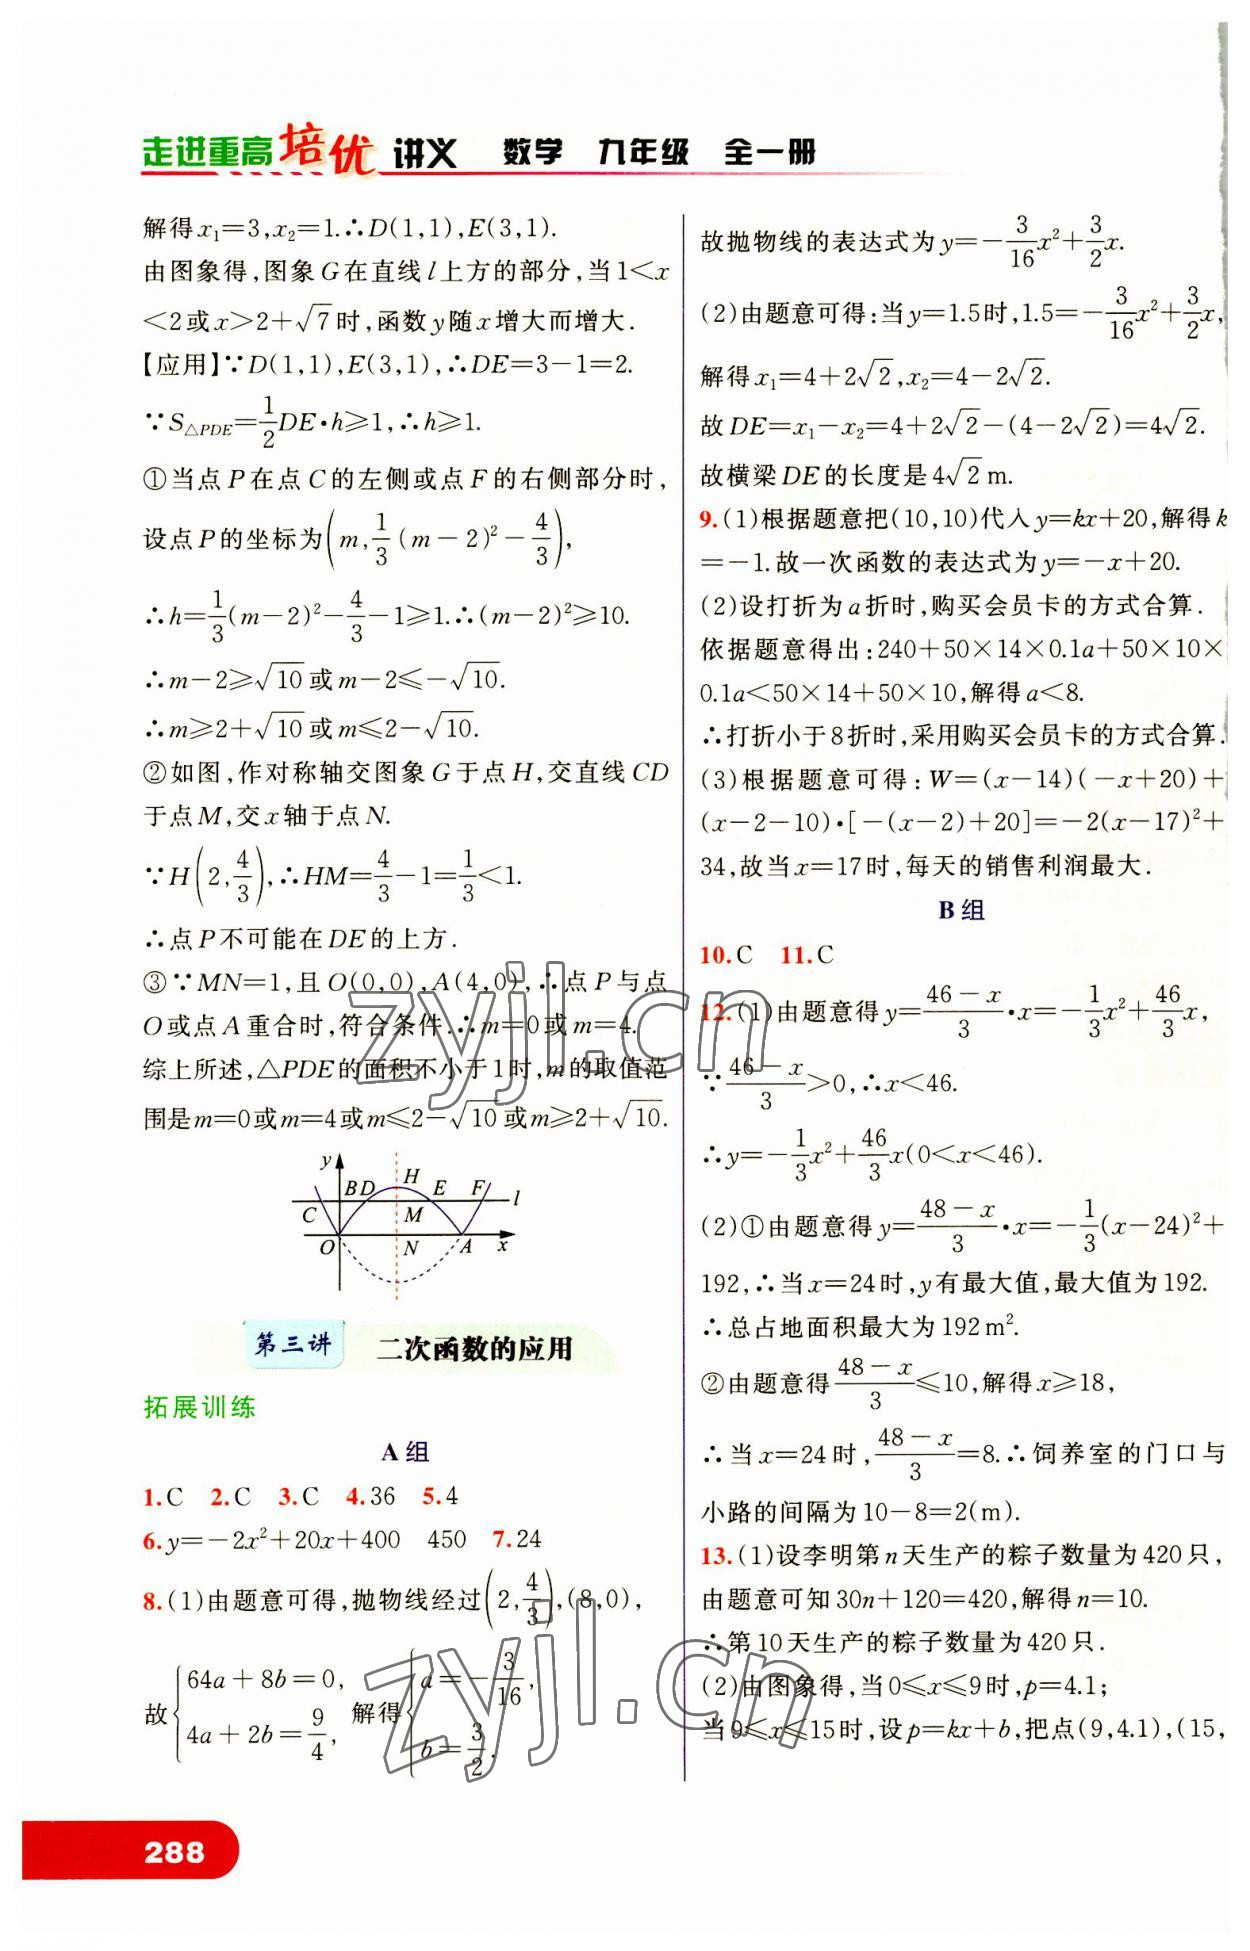 走进重高培优 讲义 数学 九年级 全一册
解得x₁=3,x₂=1.∴D(1,1),E(3,1).
由图象得,图象G在直线l上方的部分,当1<x
<2或x>2+√7时,函数y随x增大而增大.
【应用】∵D(1,1),E(3,1),∴DE=3-1=2.
∵S△PDE=1/2DE·h≥1,∴h≥1.
①当点P在点C的左侧或点F的右侧部分时,
设点P的坐标为(m,1/3(m-2)²-4/3),
∴h=1/3(m-2)²-4/3-1≥1.∴(m-2)²≥10.
∴m-2≥√10或m-2≤-√10.
∴m≥2+√10或m≤2-√10.
②如图,作对称轴交图象G于点H,交直线CD
于点M,交x轴于点N.
∵H(2,4/3),∴HM=4/3-1=1/3<1.
∴点P不可能在DE的上方.
③∵MN=1,且O(0,0),A(4,0),∴点P与点
O或点A重合时,符合条件.∴m=0或m=4.
综上所述,△PDE的面积不小于1时,m的取值范
围是m=0或m=4或m≤2-√10或m≥2+√10.
y H
B D E F l
C M
O N A x
第三讲 二次函数的应用
拓展训练
A组
1.C 2.C 3.C 4.36 5.4
6.y=-2x²+20x+400 450 7.24
8.(1)由题意可得,抛物线经过(2,4/3),(8,0),
故{64a+8b=0, 4a+2b=9/4, 解得{a=-3/16, b=3/2.
288
故抛物线的表达式为y=-3/16x²+3/2x.
(2)由题意可得:当y=1.5时,1.5=-3/16x²+3/2x,
解得x₁=4+2√2,x₂=4-2√2.
故DE=x₁-x₂=4+2√2-(4-2√2)=4√2.
故横梁DE的长度是4√2 m.
9.(1)根据题意把(10,10)代入y=kx+20,解得k
=-1.故一次函数的表达式为y=-x+20.
(2)设打折为a折时,购买会员卡的方式合算.
依据题意得出:240+50×14×0.1a+50×10×
0.1a<50×14+50×10,解得a<8.
∴打折小于8折时,采用购买会员卡的方式合算.
(3)根据题意可得:W=(x-14)(-x+20)+
(x-2-10)·[-(x-2)+20]=-2(x-17)²+
34,故当x=17时,每天的销售利润最大.
B组
10.C 11.C
12.(1)由题意得y=(46-x)/3·x=-1/3x²+46/3x,
∵(46-x)/3>0,∴x<46.
∴y=-1/3x²+46/3x(0<x<46).
(2)①由题意得y=(48-x)/3·x=-1/3(x-24)²+
192,∴当x=24时,y有最大值,最大值为192.
∴总占地面积最大为192 m².
②由题意得(48-x)/3≤10,解得x≥18,
∴当x=24时,(48-x)/3=8.∴饲养室的门口与
小路的间隔为10-8=2(m).
13.(1)设李明第n天生产的粽子数量为420只,
由题意可知30n+120=420,解得n=10.
∴第10天生产的粽子数量为420只.
(2)由图象得,当0≤x≤9时,p=4.1;
当9≤x≤15时,设p=kx+b,把点(9,4.1),(15,
zyjl.cn
zyjl.cn